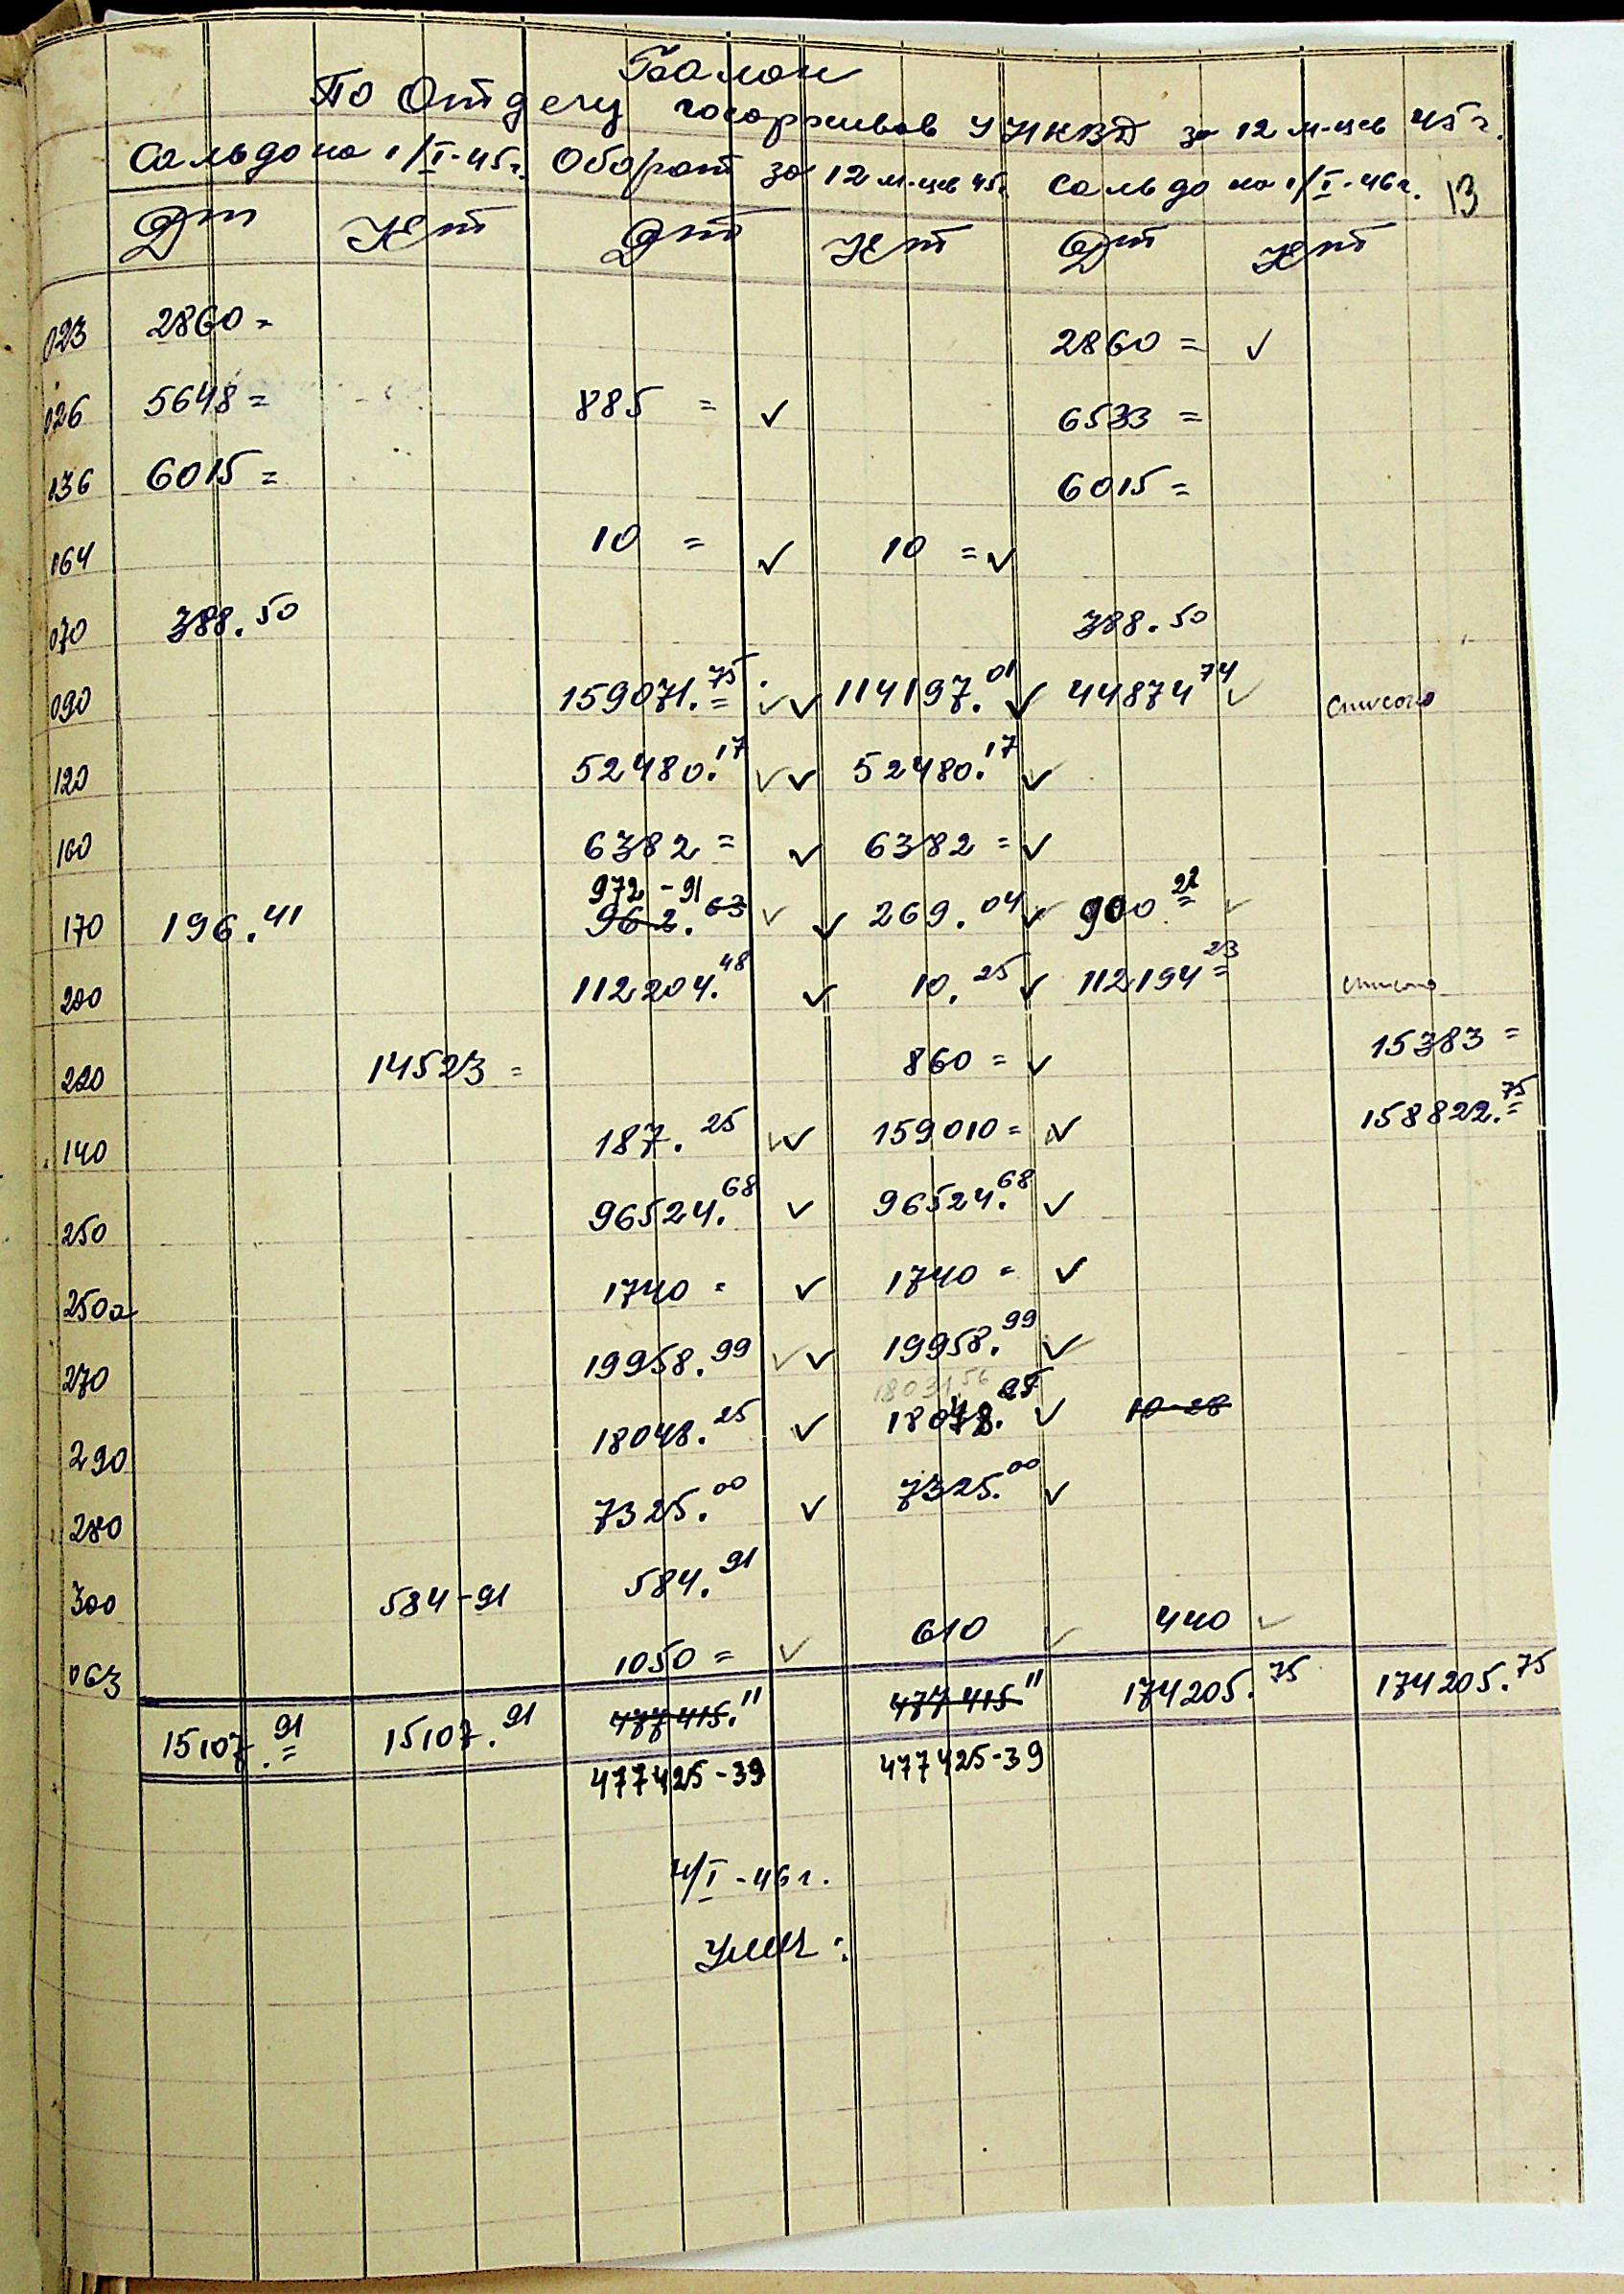 Балан
По Отделу госархивов УНКВД за 12 м-цев 45 г.
Сальдо на 1/I-45г. Оборот за 12 м-цев 45г. Сальдо на 1/I-46г. 13
Дт Кт Дт Кт Дт Кт
023 2860= 2860= ✓
026 5648= 885= ✓ 6533=
136 6015= 6015=
164 10= ✓ 10= ✓
070 388.50 388.50
090 159071.75 ✓✓ 114197.01 ✓ 44874 74 ✓ списано
120 52480.17 ✓✓ 52480.17 ✓
160 6382= ✓ 6382= ✓
972-91
170 196.41 962.63 ✓✓ 269.04 ✓ 900.22 ✓
200 112204.48 ✓ 10.25 ✓ 112194 23 списано
220 14523= 860= ✓ 15383=
140 187.25 ✓✓ 159010= ✓ 158822.75
250 96524.68 ✓ 96524.68 ✓
250а 1740= ✓ 1740= ✓
270 19958.99 ✓✓ 19958.99 ✓
18031,56
290 18048.25 ✓ 18048.25 ✓ 10-28
280 7325.00 ✓ 7325.00 ✓
300 584-91 584.91
063 1050= ✓ 610 ✓ 440 ✓
15107.91 15107.91 477415.11 477415.11 174205.75 174205.75
477425-39 477425-39
4/I-46г.